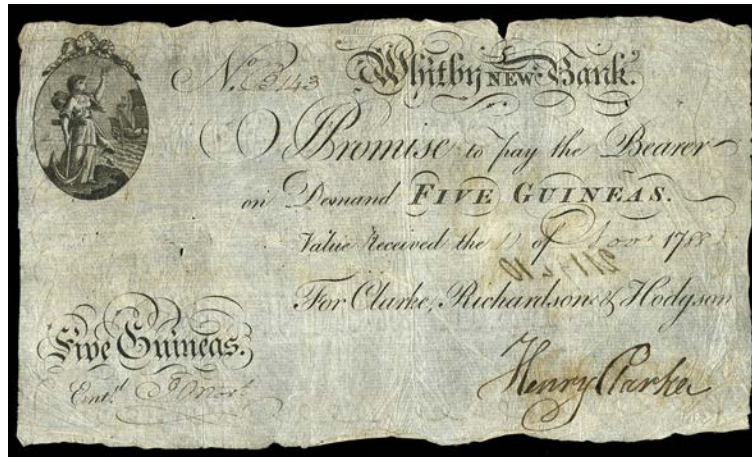 No. C3143 Whitby NEW Bank.
I Promise to pay the Bearer
on Demand FIVE GUINEAS.
Value Received the of Novr 1788
For Clarke, Richardson & Hodgson
Five Guineas.
Entd.
Henry Clarke